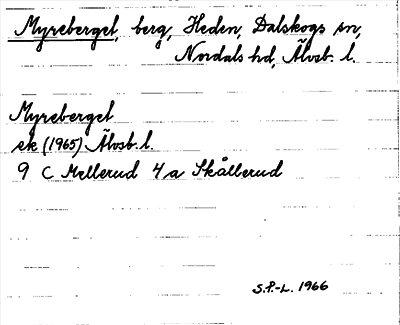 Myreberget, berg, Heden, Dalskogs sn,
Nordals hd, Älvsb. l.
Myreberget
ek (1965) Älvsb. l.
9 C Mellerud 4 a Skållerud
S.P.-L. 1966